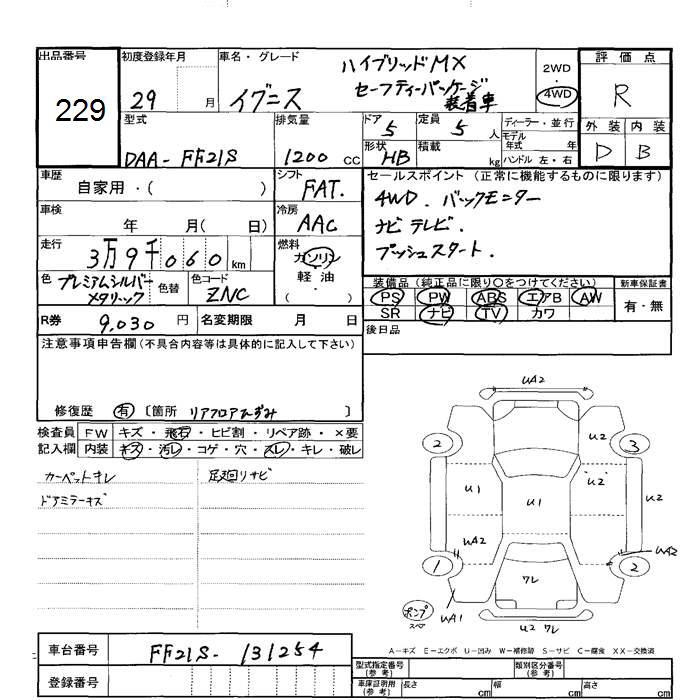 出品番号
229
初度登録年月
29 月
車名・グレード
イグニス
ハイブリッドMX
セーフティーパッケージ
装着車
2WD
・
4WD
評価点
R
外装 内装
D B
型式
DAA-FF21S
排気量
1200 CC
ドア 5
定員 5 人
形状 HB
積載 kg
ディーラー・並行
モデル
年式 年
ハンドル 左・右
車歴
自家用・( )
シフト
FAT.
セールスポイント(正常に機能するものに限ります)
4WD. バックモニター
ナビ テレビ.
プッシュスタート.
車検
年 月( 日)
冷房
AAC
走行
3万9千060 km
燃料
ガソリン
軽油
・
( )
色 プレミアムシルバー
メタリック
色替
色コード
ZNC
装備品(純正品に限り○をつけてください)
PS PW ABS エアB AW
SR ナビ TV カワ
新車保証書
有・無
R券 9,030 円
名変期限 月 日
後日品
注意事項申告欄(不具合内容等は具体的に記入して下さい)
修復歴 有 〔箇所 リアフロアひずみ 〕
検査員
記入欄
FW キズ・飛石・ヒビ割・リペア跡・×要
内装 キズ・汚レ・コゲ・穴・スレ・キレ・破レ
カーペットキレ
ドアミラーキズ
足廻リサビ
UA2
2
U2
3
U1
U1
"U2"
U2
UA2
1
UA2
2
ワレ
UA1
ポンプ
スペア
U2 ワレ
A－キズ E－エクボ U－凹み W－補修跡 S－サビ C－腐食 XX－交換済
車台番号
FF21S-131254
登録番号
型式指定番号
(参考)
類別区分番号
(参考)
車庫証明用
(参考)
長さ cm
幅 cm
高さ cm